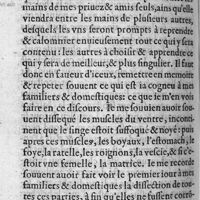 mains de mes priuez & amis seuls, ains qu'elle
viendra entre les mains de plusieurs autres,
desquels les vns seront prompts à reprendre
& calomnier enuieusement tout ce qui y sera
contenu: les autres à choisir & apprendre ce
qui y sera de meilleur, & plus singulier. Il faut
donc en faueur d'iceux, remettre en memoire
& repeter souuent ce qui est ia cogneu à mes
familiers & domestiques: ce que ie m'en voi
faire en ce discours. Ie me souuien auoir sou-
uent dissequé les muscles du ventre, incont
nent que le singe estoit suffoqué & noyé: puis
apres ces muscles, les boyaux, l'estomach, le
foye, la ratelle, les roignons, la vescie, & si c'e
stoit vne femelle, la matrice. Ie me recorde
souuent auoir fait voir le premier iour à mes
familiers & domestiques la dissection de tou-
tes ces parties, à fin qu'elles ne fussent corro-